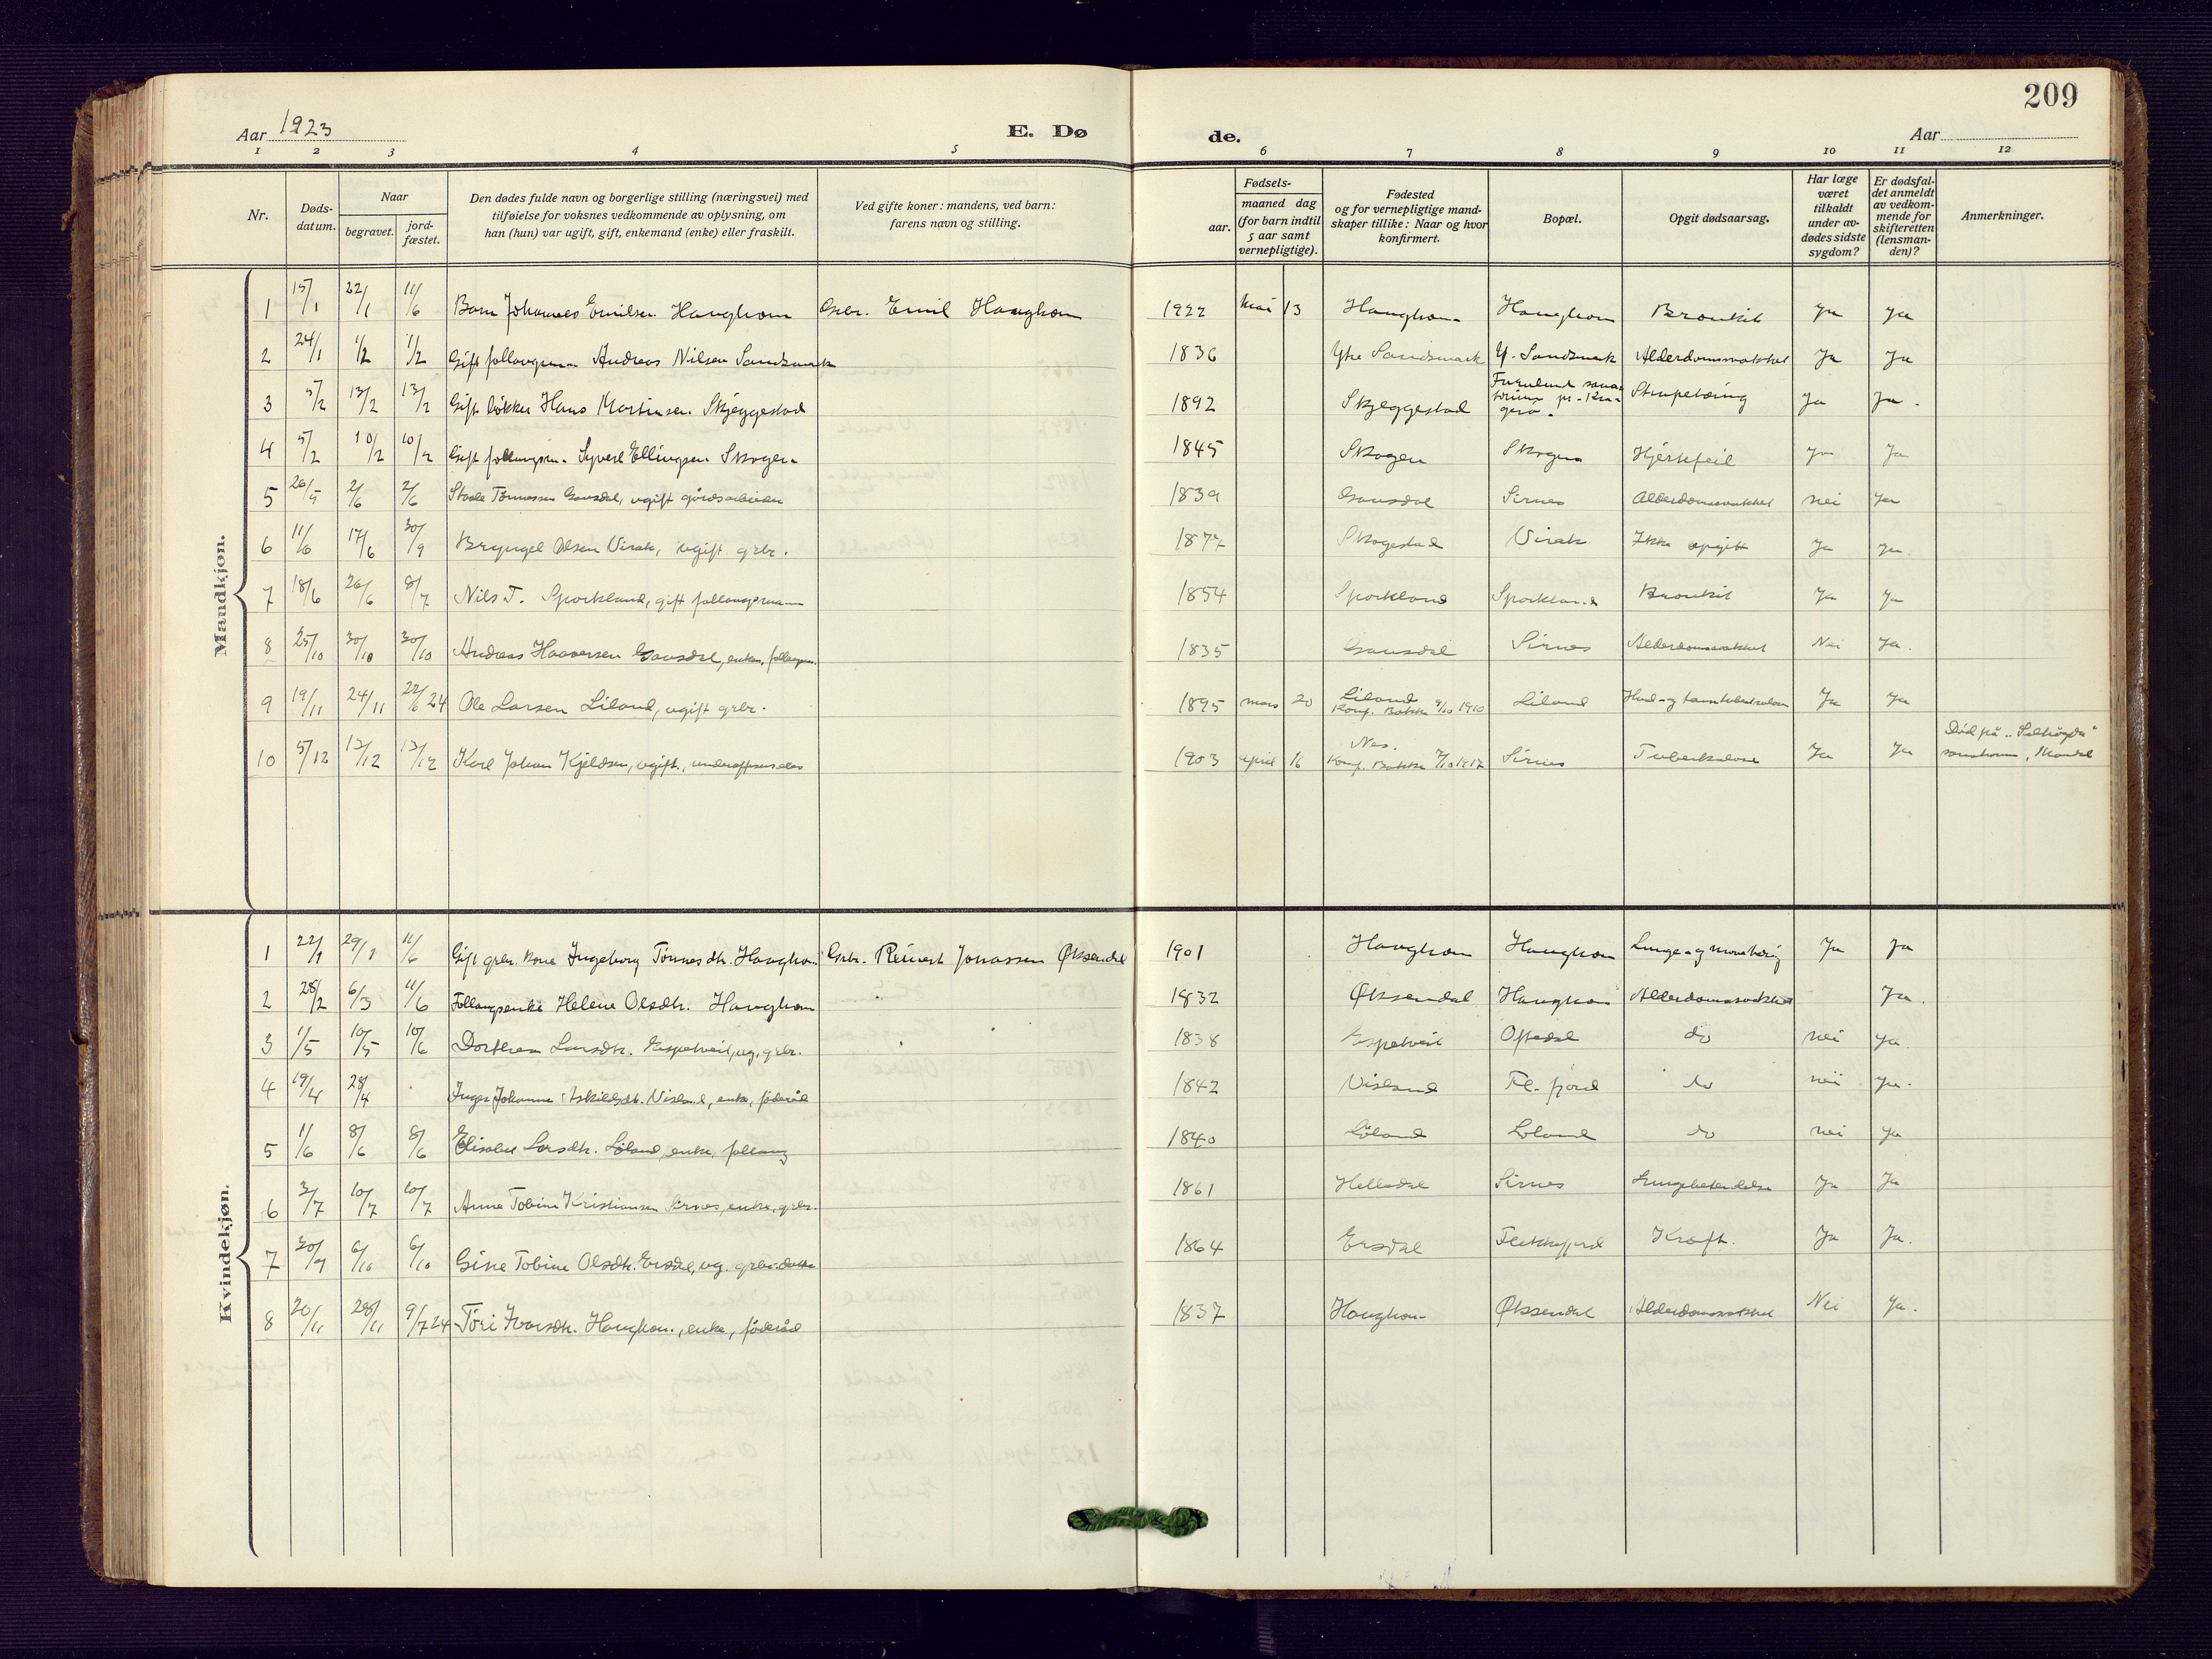 209
Aar 1923 E. Dø de. Aar
1 2 3 4 5 6 7 8 9 10 11 12
Nr.
Døds-
datum.
Naar
begravet.
jord-
fæstet.
Den dødes fulde navn og borgerlige stilling (næringsvei) med
tilføielse for voksnes vedkommende av oplysning, om
han (hun) var ugift, gift, enkemand (enke) eller fraskilt.
Ved gifte koner: mandens, ved barn:
farens navn og stilling.
Fødsels-
aar.
maaned dag
(for barn indtil
5 aar samt
vernepligtige).
Fødested
og for vernepligtige mand-
skaper tillike: Naar og hvor
konfirmert.
Bopæl.
Opgit dødsaarsag.
Har læge
været
tilkaldt
under av-
dødes sidste
sygdom?
Er dødsfal-
det anmeldt
av vedkom-
mende for
skifteretten
(lensman-
den)?
Anmerkninger.
Mandkjøn.
1 15/1 22/1 11/6 Barn Johannes Emilsen Haughom Gbr. Emil Haughom 1922 mai 13 Haughom Haughom Bronkit Ja Ja
2 24/1 1/2 1/2 Gift follaugsm. Andreas Nilsen Sandsmark 1836 Ytre Sandsmark Y. Sandsmark Alderdomssvakhet Ja Ja
3 5/2 13/2 13/2 Gift løkker Hans Martinsen Skjeggestad 1892 Skjeggestad Furulund sana-
torium pr. Kra-
gerø. Strupetæring Ja Ja.
4 5/2 10/2 10/2 Gift follaugsm. Syvert Ellingsen Skogen 1845 Skogen Skogen Hjertefeil Ja Ja
5 26/5 2/6 2/6 Staale Tønnessen Gausdal, ugift gårdsarbeider 1839 Gausdal Sirnes Alderdomssvakhet nei Ja
6 11/6 17/6 30/9 Bryngel Olsen Virak, ugift gbr. 1877 Skogestad Virak Ikke opgitt Ja Ja.
7 18/6 26/6 8/7 Nils T. Sporkland, gift follaugsmann 1854 Sporkland Sporkland Bronkit Ja Ja
8 25/10 30/10 30/10 Andreas Haaversen Gausdal, enkem., follaugsm. 1835 Gausdal Sirnes Alderdomssvakhet Nei Ja.
9 19/11 24/11 22/6 24 Ole Larsen Liland, ugift gbr. 1895 mars 20 Liland
Konf. Bakke 9/10 1910 Liland Hud- og tarmtuberkulose Ja Ja
10 5/12 13/12 13/12 Karl Johan Kjeldsen, ugift, underoffiserselev 1903 april 16 Nes.
Konf. Bakke 7/10 1917 Sirnes Tuberkulose Ja Ja Død på "Solhøgda"
, Mandal
Kvindekjøn.
1 22/1 29/1 11/6 Gift gbr. kone Ingeborg Tønnesdtr. Haughom Gbr. Reinert Jonassen Øksendal 1901 Haughom Haughom Lunge- og Ja Ja
2 28/2 6/3 11/6 Follaugsenke Helene Olsdtr. Haughom 1832 Øksendal Haughom Alderdomssvakhet Ja.
3 1/5 10/5 10/6 Dorthea Larsdtr. Espetveit, ug, gbr. 1838 Espetveit Oftedal do nei Ja.
4 19/4 28/4 Inger Johanne Askildsdtr. Visland, enke, føderåd 1842 Visland Fl. fjord do nei Ja.
5 1/6 8/6 8/6 Elisabet Larsdtr. Løland, enke, follaug 1840 Løland Løland do nei Ja
6 3/7 10/7 10/7 Anne Tobine Kristiansen Sirnes, enke, gbr. 1861 Helledal Sirnes Lungebetendelse Ja Ja
7 30/9 6/10 6/10 Gine Tobine Olsdtr. Ersdal, ug. gbr. datter 1864 Ersdal Flekkefjord Kræft. Ja Ja.
8 20/11 28/11 9/7 24 Tøri Ivarsdtr. Haughom, enke, føderåd 1837 Haughom Øksendal Alderdomssvakhet Nei Ja.